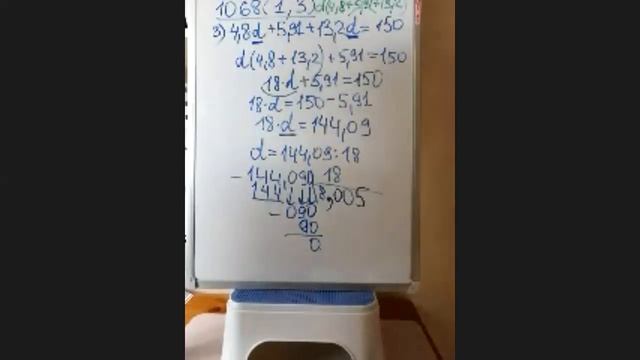 1068(1,3) d(4,8+5,91+13,2)
3) 4,8d+5,91+13,2d=150
d(4,8+13,2)+5,91=150
18·d+5,91=150
18·d=150-5,91
18·d=144,09
d=144,09:18
-144,090 18
144 8,005
-090
90
0